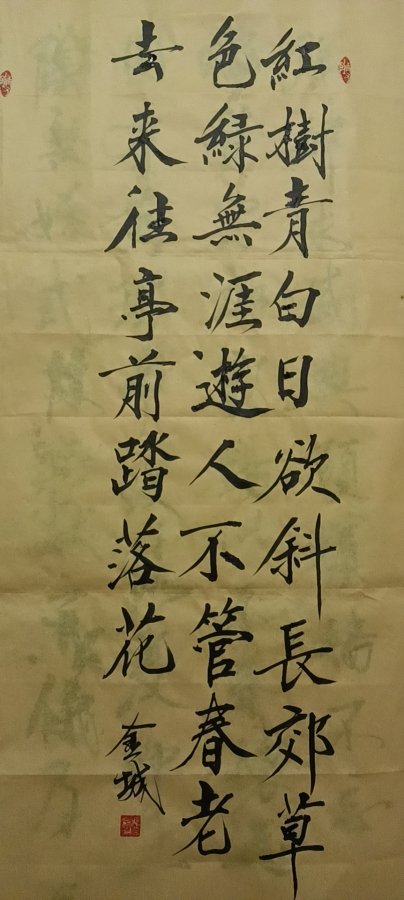 紅樹青白日欲斜長郊草
色綠無涯遊人不管春老
去来往亭前踏落花
金城